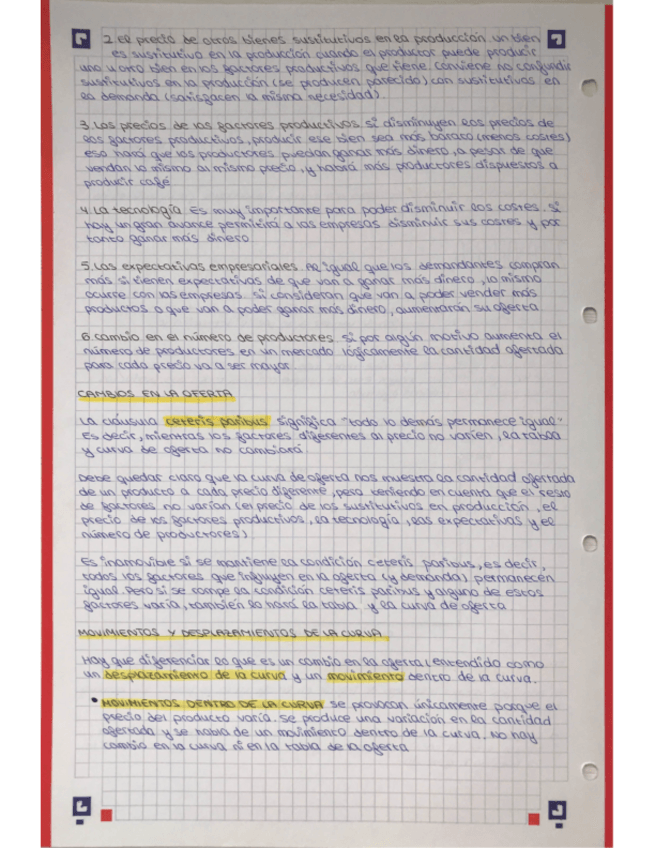 2. el precio de otros bienes sustitutivos en la producción un bien
es sustitutivo en la producción cuando el productor puede producir
uno u otro bien en los factores productivos que tiene. conviene no confundir
sustitutivos en la producción (se producen parecido) con sustitutivos en
la demanda (satisfacen la misma necesidad)
3. Los precios de los factores productivos. si disminuyen los precios de
los factores productivos, producir ese bien sea más barato (menos costes)
eso hará que los productores puedan ganar más dinero, a pesar de que
vendan lo mismo al mismo precio, y habrá más productores dispuestos a
producir café
4. La tecnología. Es muy importante para poder disminuir los costes. si
hay un gran avance permitirá a las empresas disminuir sus costes y por
tanto ganar más dinero.
5. Las expectativas empresariales. Al igual que los demandantes compran
más si tienen expectativas de que van a ganar más dinero, lo mismo
ocurre con las empresas. si consideran que van a poder vender más
productos o que van a poder ganar más dinero, aumentarán su oferta.
6. cambio en el número de productores. si por algún motivo aumenta el
número de productores en un mercado lógicamente la cantidad ofertada
para cada precio va a ser mayor.
CAMBIOS EN LA OFERTA
La cláusula ceteris paribus significa "todo lo demás permanece igual"
Es decir, mientras los factores diferentes al precio no varíen, la tabla
y curva de oferta no cambiará.
Debe quedar claro que la curva de oferta nos muestra la cantidad ofertada
de un producto a cada precio diferente, pero teniendo en cuenta que el resto
de factores no varían (el precio de los sustitutivos en producción, el
precio de los factores productivos, la tecnología, las expectativas y el
número de productores)
Es inamovible si se mantiene la condición ceteris paribus, es decir,
todos los factores que influyen en la oferta (y demanda) permanecen
igual. Pero si se rompe la condición ceteris paribus y alguno de estos
factores varía, también lo hará la tabla y la curva de oferta
MOVIMIENTOS Y DESPLAZAMIENTOS DE LA CURVA
Hay que diferenciar lo que es un cambio en la oferta (entendido como
un desplazamiento de la curva y un movimiento dentro de la curva.
• MOVIMIENTOS DENTRO DE LA CURVA se provocan únicamente porque el
precio del producto varía. se produce una variación en la cantidad
ofertada y se habla de un movimiento dentro de la curva. No hay
cambio en la curva ni en la tabla de la oferta